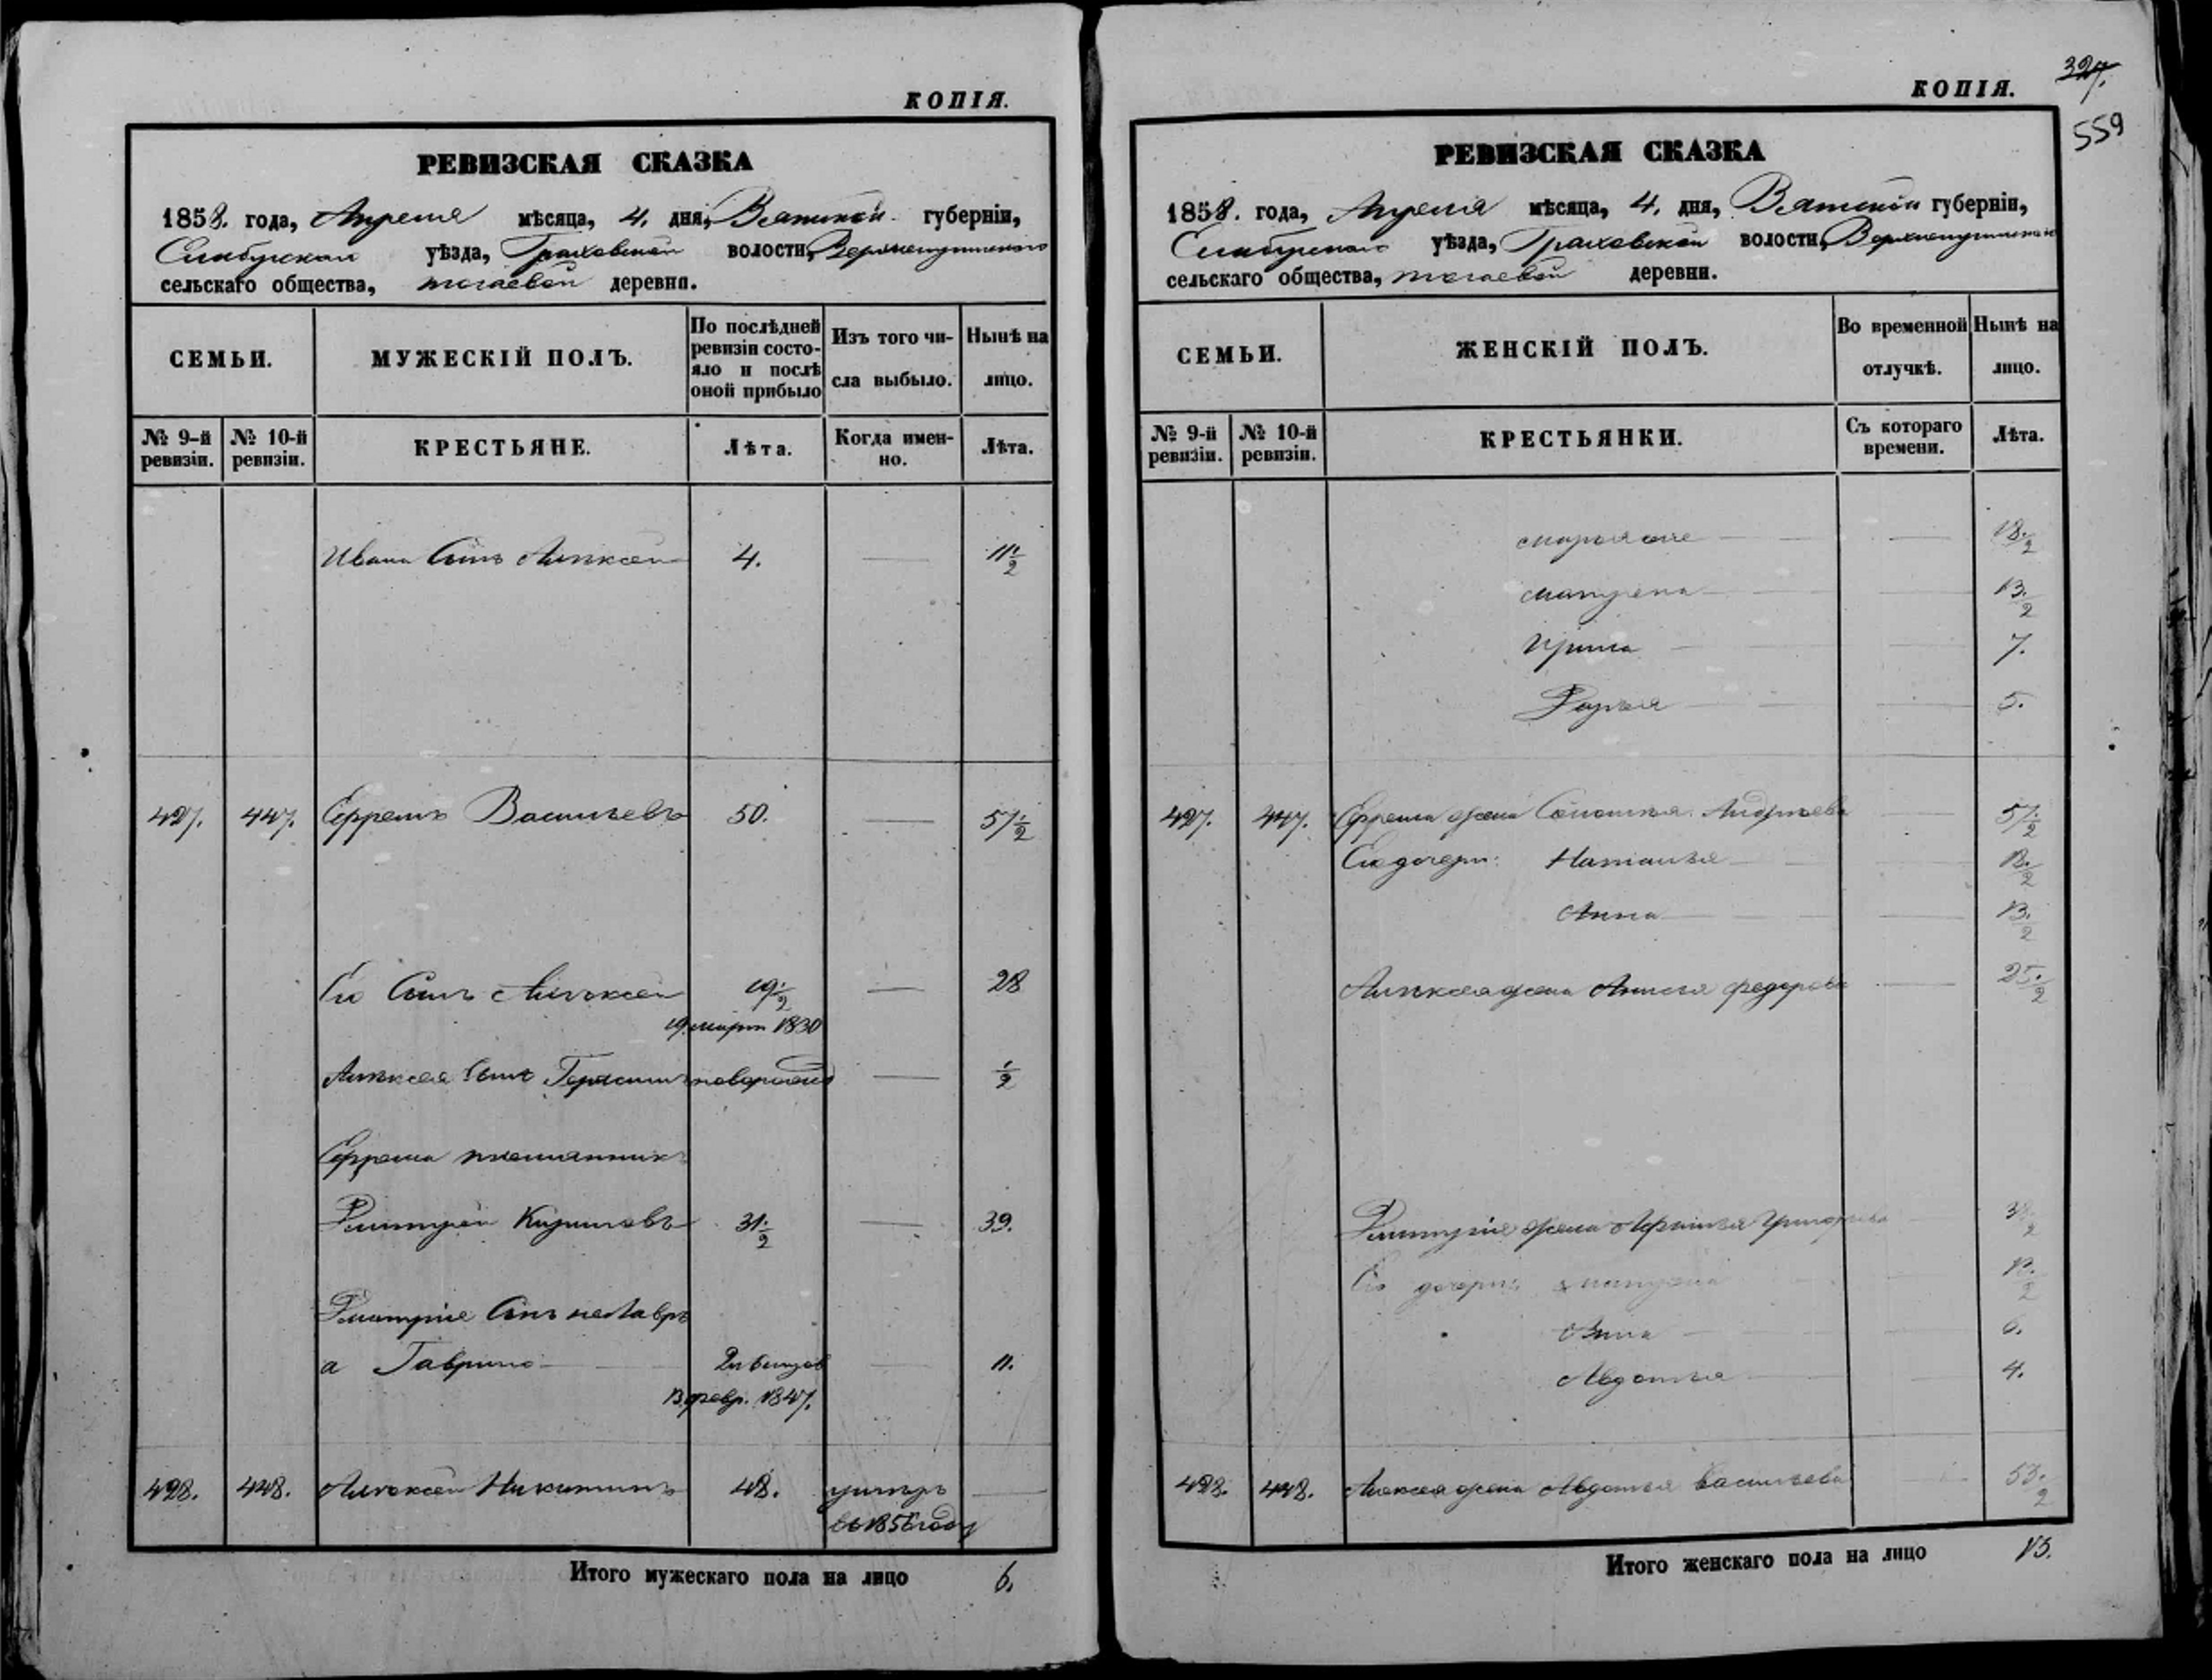 КОПІЯ.
РЕВИЗСКАЯ СКАЗКА
1858. года, Апреля мѣсяца, 4. дня, Вятской губерніи,
Елабугскаго уѣзда, Граховской волости,
сельскаго общества, деревни.
СЕМЬИ.
МУЖЕСКІЙ ПОЛЪ.
По послѣдней ревизіи состояло и послѣ оной прибыло
Изъ того числа выбыло.
Нынѣ на лицо.
№ 9-й ревизіи.
№ 10-й ревизіи.
КРЕСТЬЯНЕ.
Лѣта.
Когда именно.
Лѣта.
Ивана Сынъ Алѣксей 4. 11 1/2
427. 447. Ефремъ Васильевъ 50. 57 1/2
Его Сынъ Алѣксей 19 1/2 28
19 марта 1830
Алѣксея Сынъ Герасимъ новорожд 1/2
Ефрема племянникъ
Дмитрей Кириловъ 31 1/2 39.
Дмитрія Сынъ не Лавръ
а Гаврило 11.
13 февр. 1847.
428. 448. Алѣксей Никитинъ 48. умеръ
6.
Итого мужескаго пола на лицо
КОПІЯ.
327.
559
РЕВИЗСКАЯ СКАЗКА
1858. года, Апреля мѣсяца, 4. дня, Вятской губерніи,
Елабугскаго уѣзда, Граховской волости,
сельскаго общества, деревни.
СЕМЬИ.
ЖЕНСКІЙ ПОЛЪ.
Во временной отлучкѣ.
Нынѣ на лицо.
№ 9-й ревизіи.
№ 10-й ревизіи.
КРЕСТЬЯНКИ.
Съ котораго времени.
Лѣта.
Матрена 13 1/2
Ирина 7.
Дарья 5.
427. 447. Ефрема жена Соломея Андреева 57 1/2
Его дочери: Наталья
Анна 13 1/2
Алѣксея жена Анисья Федорова 25 1/2
Дмитрія жена
Его дочери: Матрена
Анна 6.
Авдотья 4.
428. 448. Алексея жена Авдотья Васильева 53 1/2
Итого женскаго пола на лицо 13.